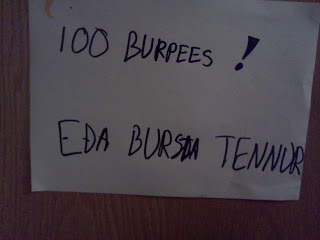 100 BURPEES !
EÐA BURSTA TENNUR